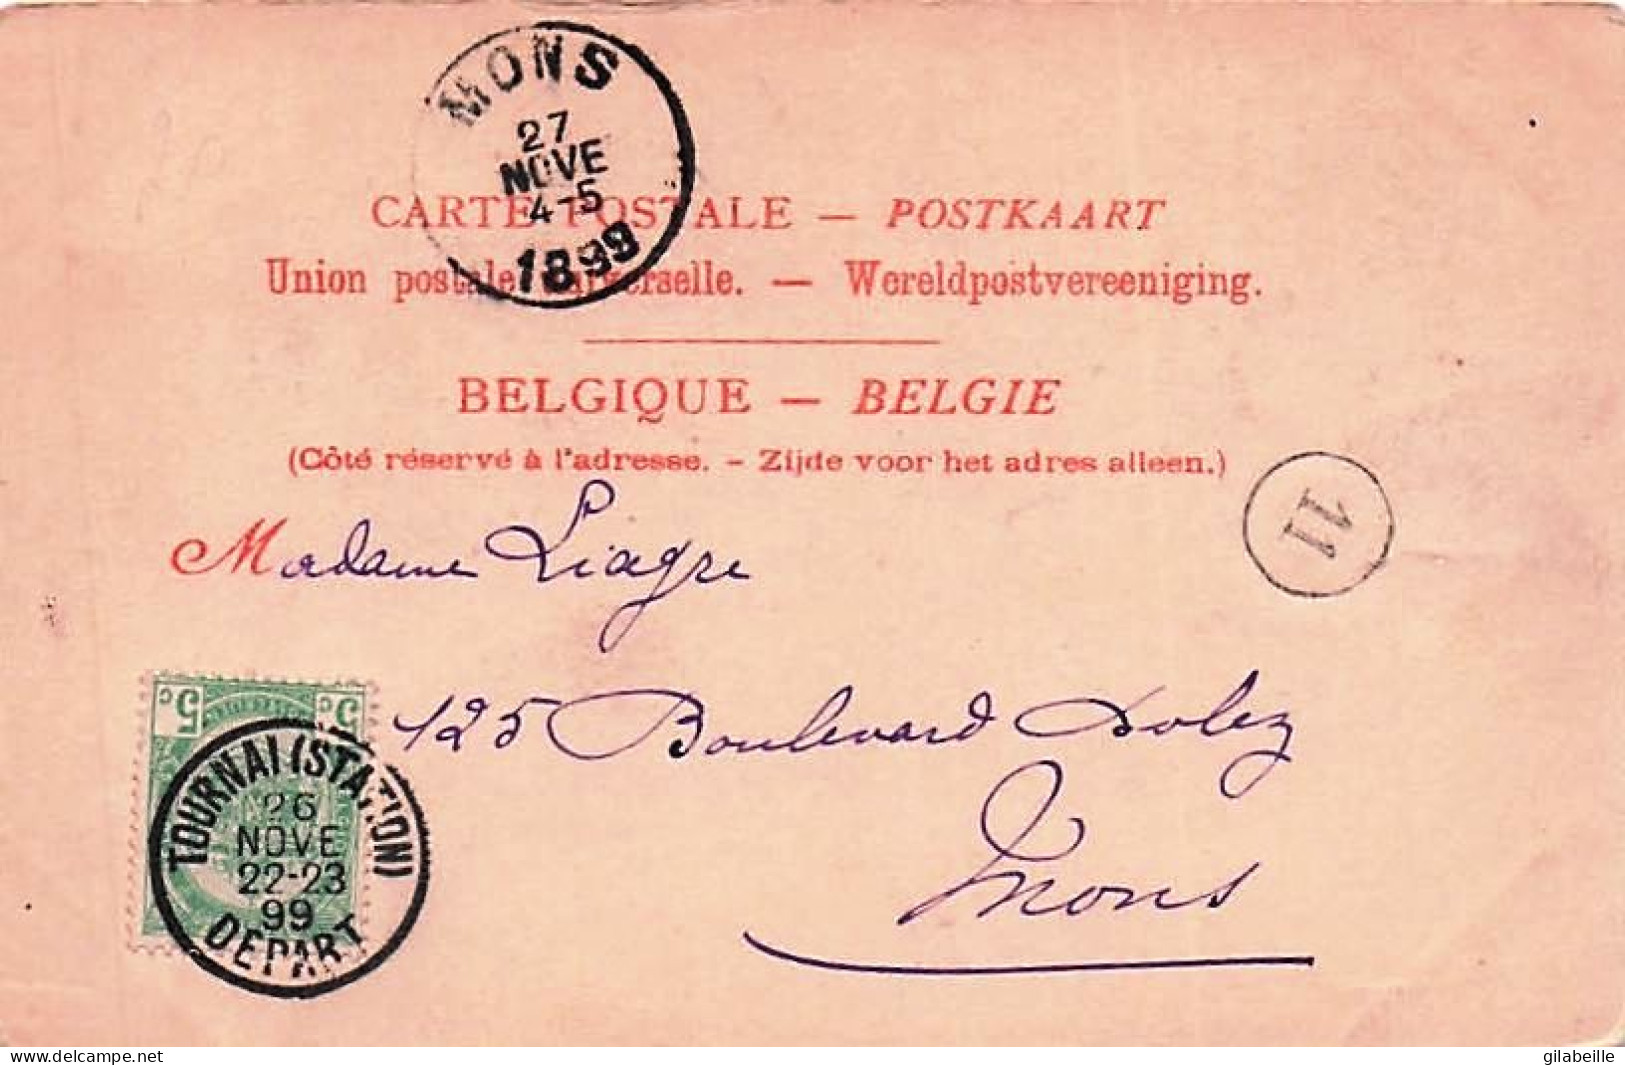 MONS
27
NOVE
4-5
1899
CARTE POSTALE — POSTKAART
Union postale universelle. — Wereldpostvereeniging.
BELGIQUE — BELGIE
(Côté réservé à l'adresse. – Zijde voor het adres alleen.)
11
Madame Liagre
125 Boulevard Dolez
Mons
5c 5c
TOURNAI (STATION)
26
NOVE
22-23
99
DEPART
www.delcampe.net
gilabeille